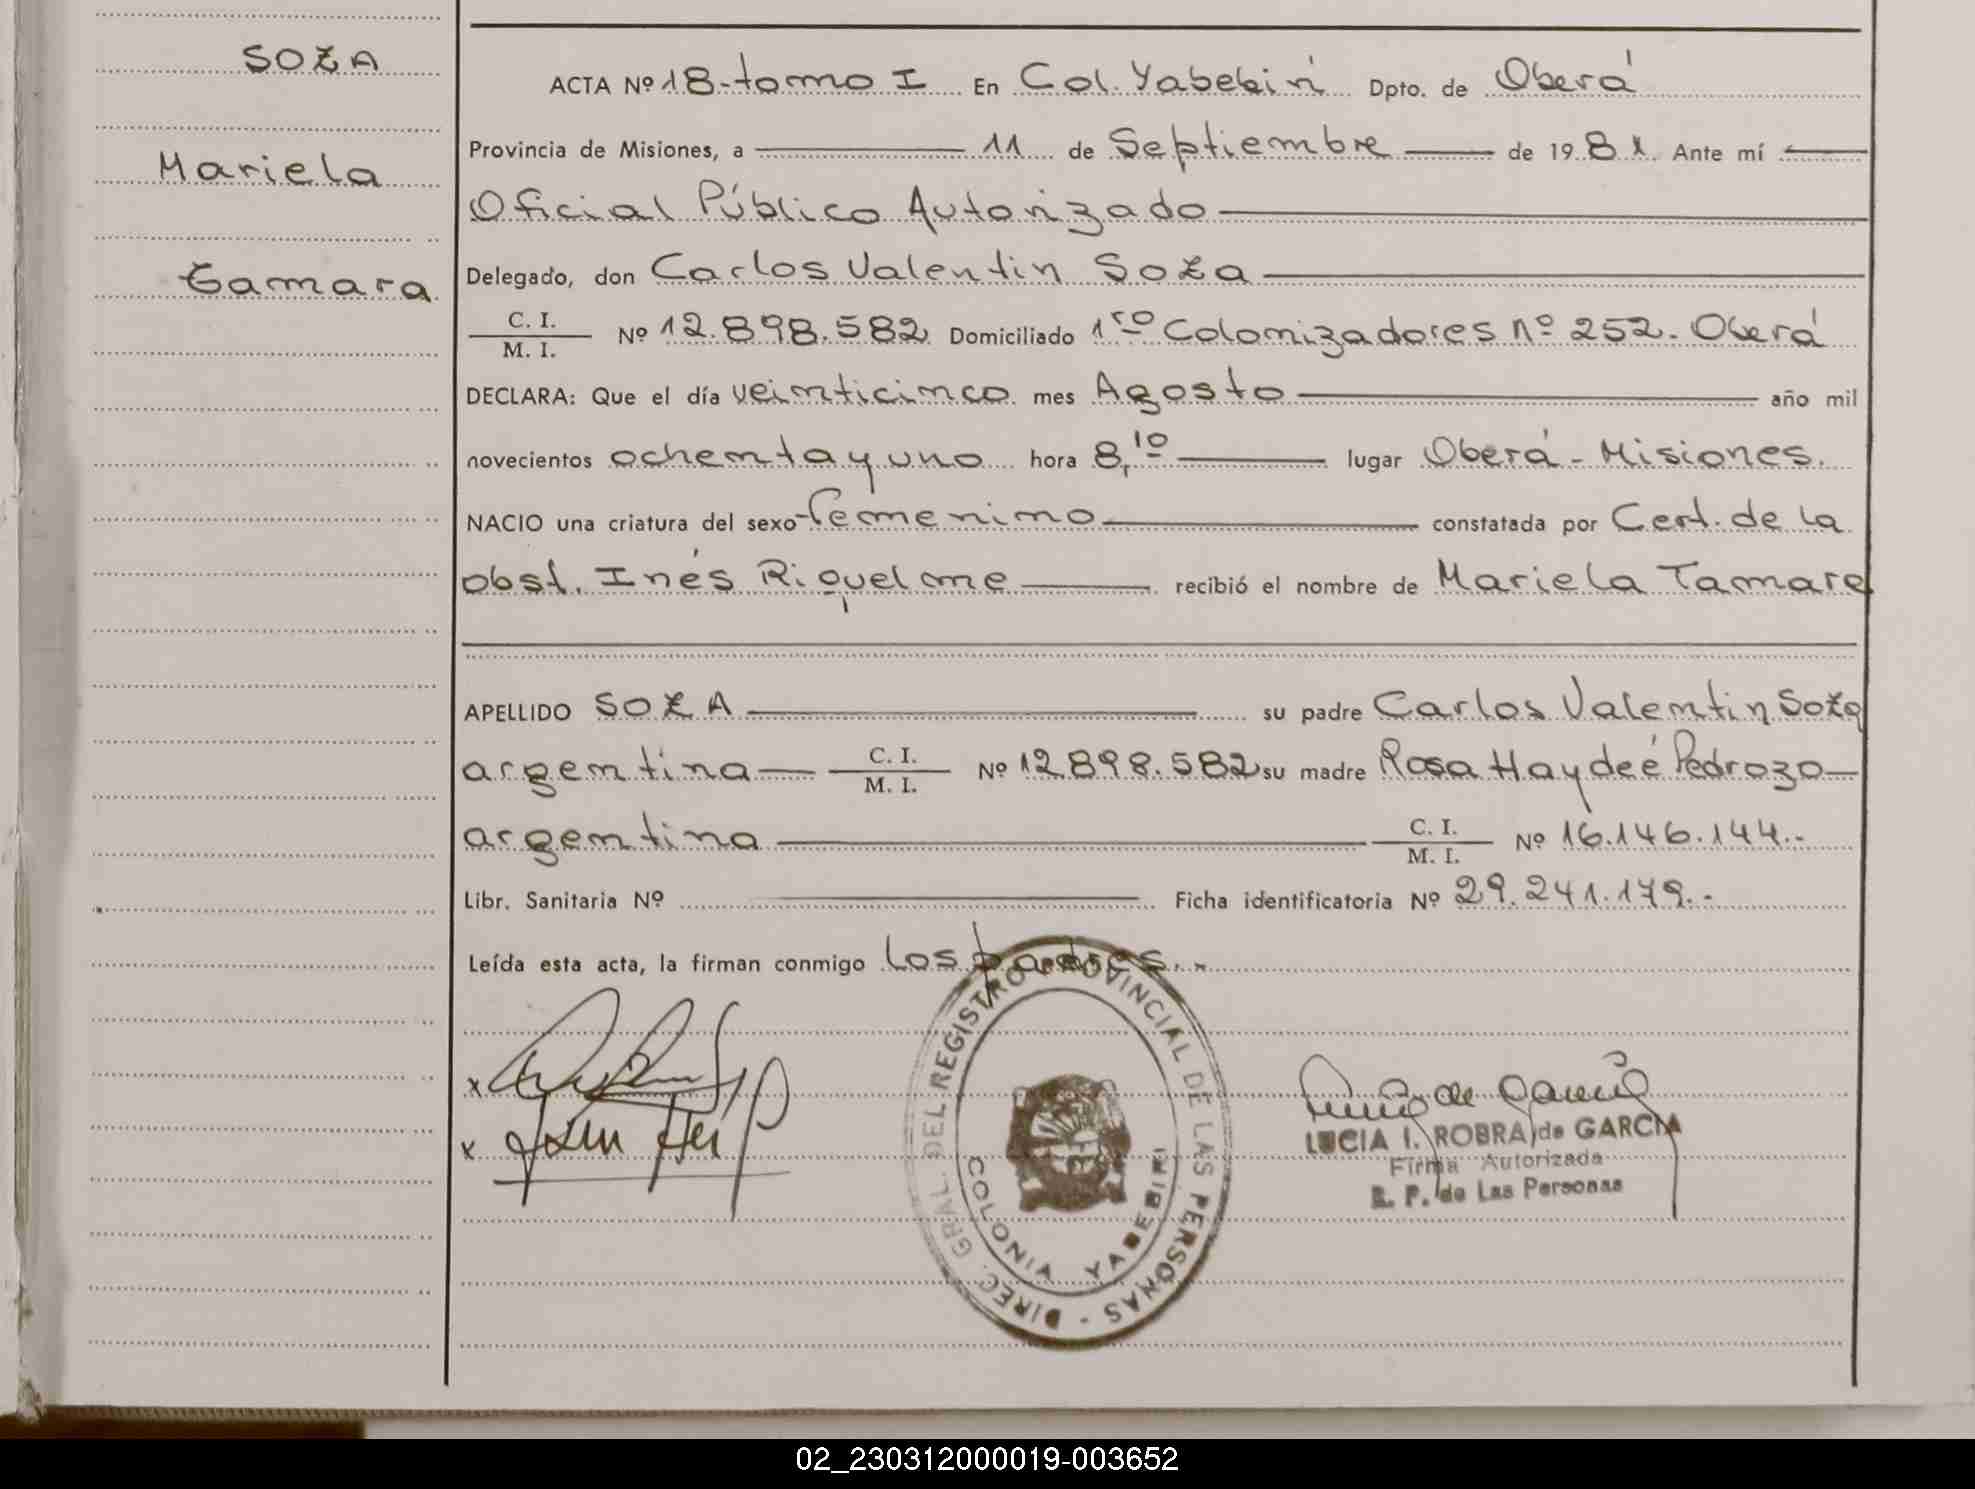 SOZA
Mariela
Tamara
ACTA Nº 18-tomo I En Col. Yabebiri Dpto. de Oberá
Provincia de Misiones, a 11 de Septiembre de 1981. Ante mí
Oficial Público Autorizado
Delegado, don Carlos Valentin Soza
C. I.
M. I.
Nº 12.898.582 Domiciliado 1ro Colonizadores nº 252. Oberá
DECLARA: Que el día veinticinco mes Agosto año mil
novecientos ochenta y uno hora 8,10 lugar Oberá - Misiones.
NACIO una criatura del sexo femenino constatada por Cert. de la
obst. Inés Riquelme recibió el nombre de Mariela Tamara
APELLIDO SOZA su padre Carlos Valentin Soza
argentina C. I. M. I. Nº 12.898.582 su madre Rosa Haydeé Pedrozo
argentina C. I. M. I. Nº 16.146.144.-
Libr. Sanitaria Nº Ficha identificatoria Nº 29.241.179.-
Leída esta acta, la firman conmigo los padres.-
x
x
DIREC. GRAL. DEL REGISTRO PROVINCIAL DE LAS PERSONAS -
COLONIA YABEBIRI
LUCIA I. ROBRA de GARCIA
Firma Autorizada
R. P. de Las Personas
02_230312000019-003652